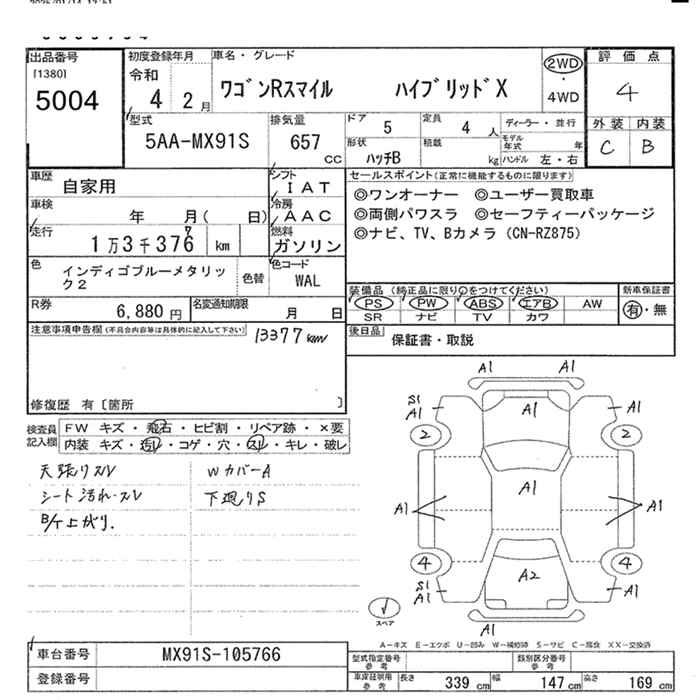 出品番号
[1380]
5004
初度登録年月
令和
4 2月
車名・グレード
ワゴンRスマイル ハイブリッドX
2WD
・
4WD
評価点
4
外装 内装
C B
型式
5AA-MX91S
排気量
657
CC
ドア 5
定員 4 人
ディーラー・並行
形状
ハッチB
積載
kg
モデル年式 年
ハンドル 左・右
車歴
自家用
シフト
IAT
車検
年 月( 日)
冷房
AAC
走行
1万3千376 km
7
燃料
ガソリン
色
インディゴブルーメタリック2
色替
色コード
WAL
R券
6,880円
名変通知期限
月 日
セールスポイント(正常に機能するものに限ります)
◎ワンオーナー ◎ユーザー買取車
◎両側パワスラ ◎セーフティーパッケージ
◎ナビ、TV、Bカメラ(CN-RZ875)
装備品(純正品に限り○をつけてください)
PS PW ABS エアB AW
SR ナビ TV カワ
新車保証書
有・無
後日品
保証書・取説
注意事項申告欄(不具合内容等は具体的に記入して下さい)
13377km
修復歴 有〔箇所 〕
検査員記入欄
FW キズ・飛石・ヒビ割・リペア跡・×要
内装 キズ・汚れ・コゲ・穴・スレ・キレ・破レ
天張りスレ
シート汚れ・スレ
B/T上がり.
WカバーA
下廻りS
A1 A1
S1
A1
A1
A1
2 2
A1
A1 A1
4 4
A2
S1
A1
A1
A1
スペア
A-キズ E-エクボ U-凹み W-補修跡 S-サビ C-腐食 XX-交換済
車台番号
MX91S-105766
登録番号
型式指定番号
参考
類別区分番号
参考
車庫証明用
参考
長さ 339 cm
幅 147 cm
高さ 169 cm